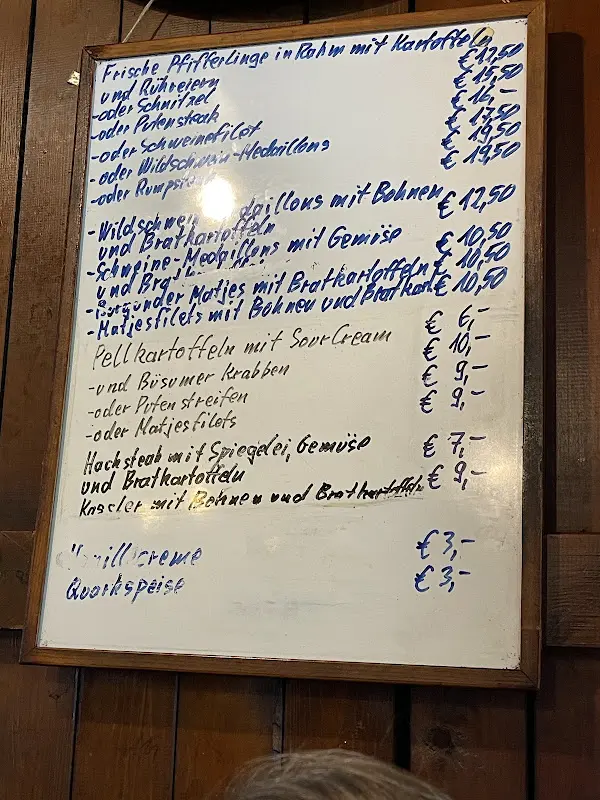 Frische Pfifferlinge in Rahm mit Kartoffeln
und Rühreiern € 12,50
-oder Schnitzel € 15,50
-oder Putensteak € 16,-
-oder Schweinefilet € 17,50
-oder Wildschwein-Medaillons € 19,50
-oder Rumpsteak € 19,50
-Wildschwein Medaillons mit Bohnen € 12,50
und Bratkartoffeln
-Schweine-Medaillons mit Gemüse € 10,50
und € 10,50
-Burgunder Matjes mit Bratkartoffeln
-Matjesfilets mit Bohnen und Bratkart € 10,50
Pellkartoffeln mit SourCream € 6,-
-und Büsumer Krabben € 10,-
-oder Putenstreifen € 9,-
-oder Matjesfilets € 9,-
Hacksteak mit Spiegelei, Gemüse € 7,-
und Bratkartoffeln
Kassler mit Bohnen und Bratkartoffeln € 9,-
Vanillecreme € 3,-
Quarkspeise € 3,-